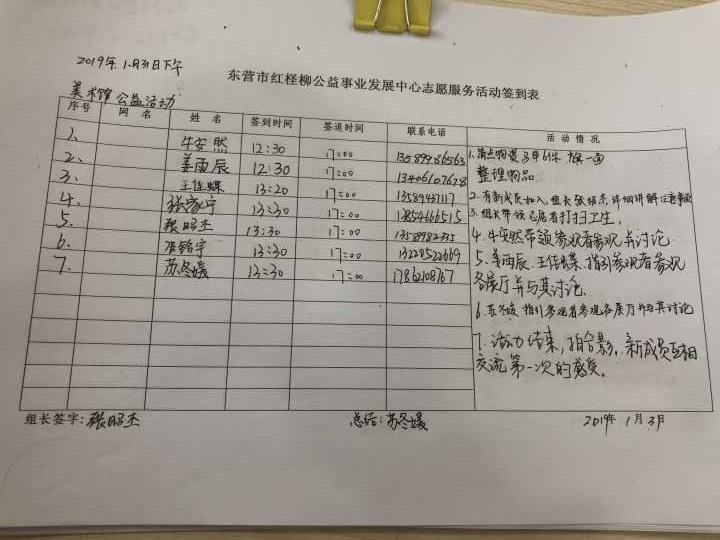 2019年1月3日下午
东营市红柽柳公益事业发展中心志愿服务活动签到表
美术馆公益活动
序号 网名 姓名 签到时间 签退时间 联系电话 活动情况
1、 牛安然 12:30 17:00 13589986563
2、 姜雨辰 12:30 17:00 13406107628
3、 王佳蝶 13:20 17:00
4、 张家宁 13:30 17:00 13854666515
5、 张昭杰 13:30 17:00
6、 13:30 17:00 13228522669
7、 苏冬媛 13:30 17:00 17862108767
1、清点物资
整理物品
2、有新成员加入,组长张昭杰详细讲解注意事项
3、组长带领志愿者打扫卫生。
4、牛安然带领参观者参观并讨论.
5、姜雨辰、王佳蝶、指引参观者参观
各展厅并与其讨论、
6、苏冬媛指引参观者参观各展厅并与其讨论
7、活动结束,拍合影,新成员互相
交流第一次的感受。
组长签字:张昭杰 总结:苏冬媛 2019年1月3日